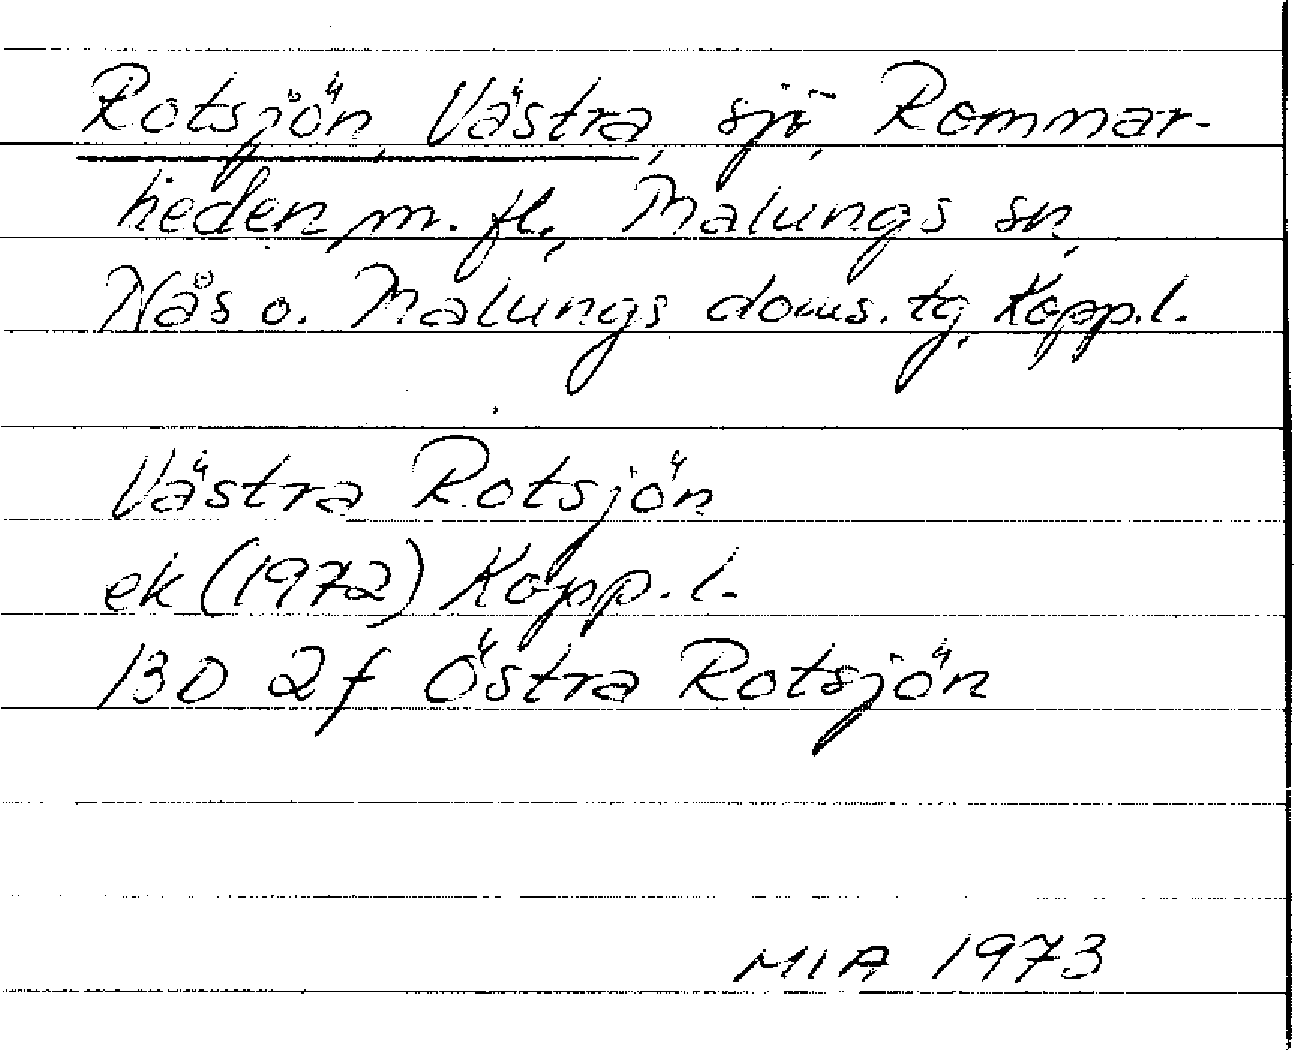 Rotsjön, Västra, sjö, Rommar-
heden m. fl., Malungs sn,
Nås o. Malungs doms. tg, Kopp.l.
Västra Rotsjön
ek (1972) Kopp.l.
13D 2f Östra Rotsjön
MIA 1973